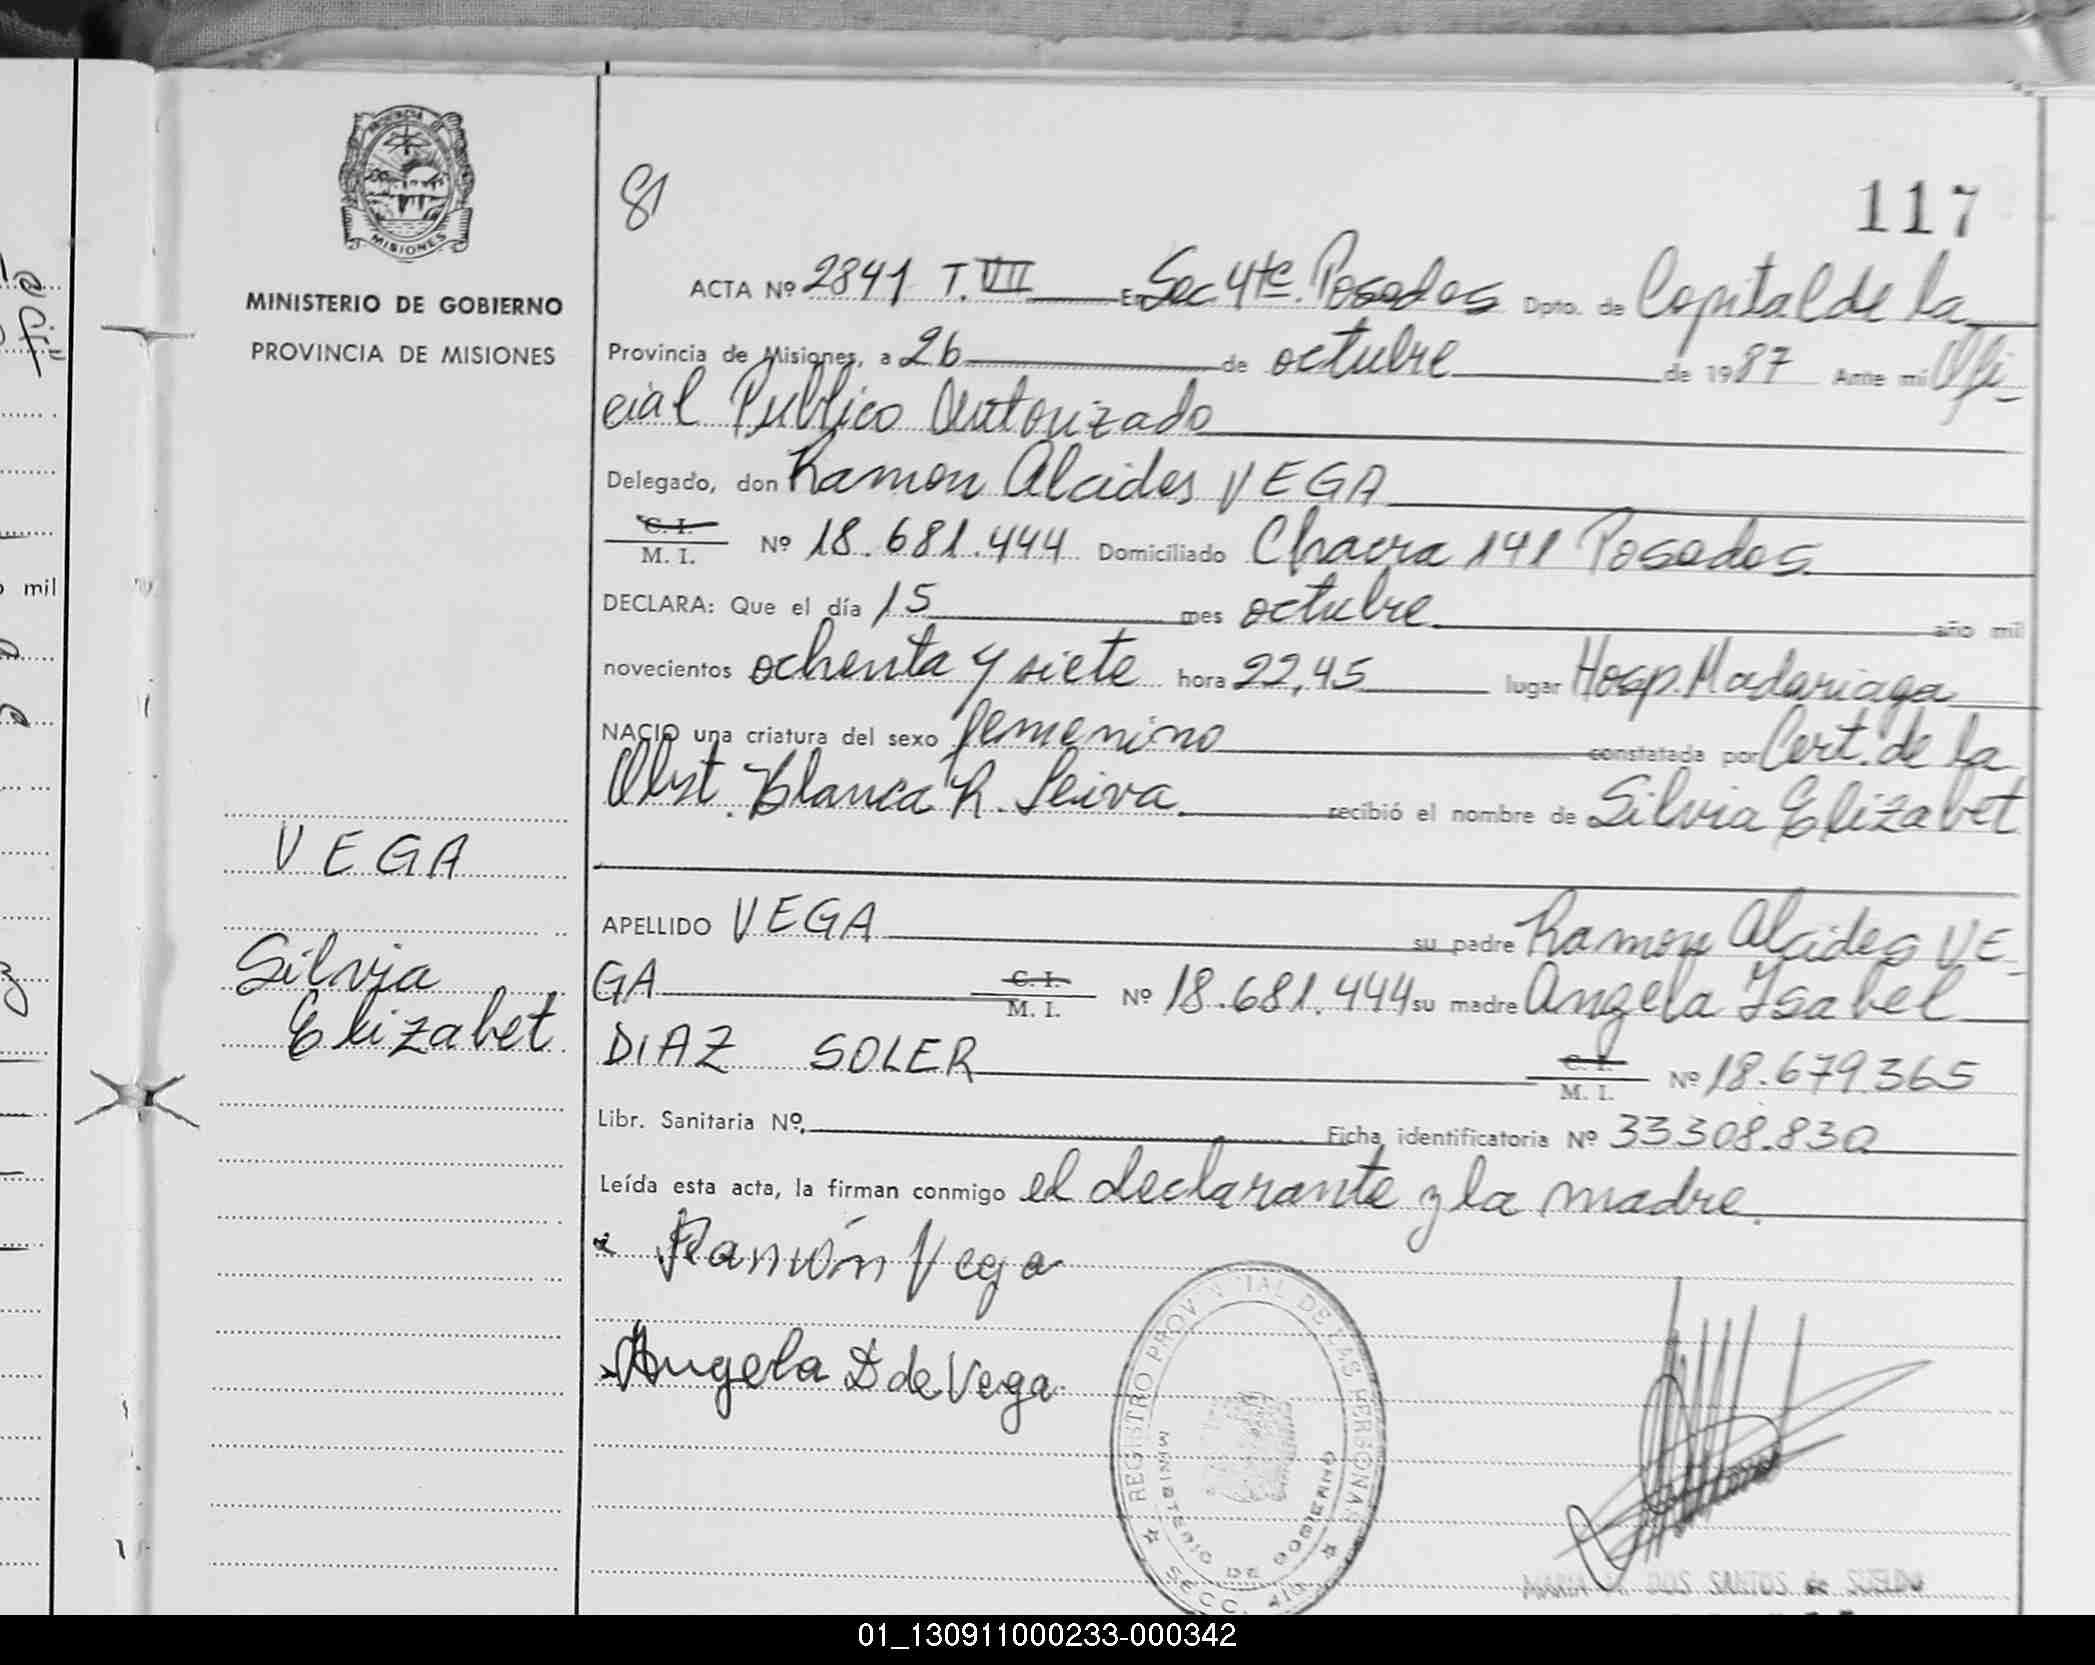 PROVINCIA DE
MISIONES
MINISTERIO DE GOBIERNO
PROVINCIA DE MISIONES
VEGA
Silvia
Elizabet
mil
81
117
ACTA Nº 2841 T. VII En Sec 4ta. Posadas Dpto. de Capital de la
Provincia de Misiones, a 26 de octubre de 1987 Ante mí Ofi-
cial Publico Autorizado
Delegado, don Ramon Alcides VEGA
C. I.
M. I. Nº 18.681.444 Domiciliado Chacra 141 Posadas.
DECLARA: Que el día 15 mes octubre año mil
novecientos ochenta y siete hora 22,45 lugar Hosp. Madariaga
NACIO una criatura del sexo femenino constatada por Cert. de la
Obst. Blanca R. Leiva recibió el nombre de Silvia Elizabet
APELLIDO VEGA su padre Ramon Alcides VE-
GA C. I.
M. I. Nº 18.681.444 su madre Angela Isabel
DIAZ SOLER C. I.
M. I. Nº 18.679.365
Libr. Sanitaria Nº. Ficha identificatoria Nº 33.308.830
Leída esta acta, la firman conmigo el declarante y la madre.
Ramón Vega
Angela D de Vega
REGISTRO PROVINCIAL DE LAS PERSONAS
MINISTERIO DE GOBIERNO
SECC. 4ta
MARIA DOS SANTOS de
01_130911000233-000342